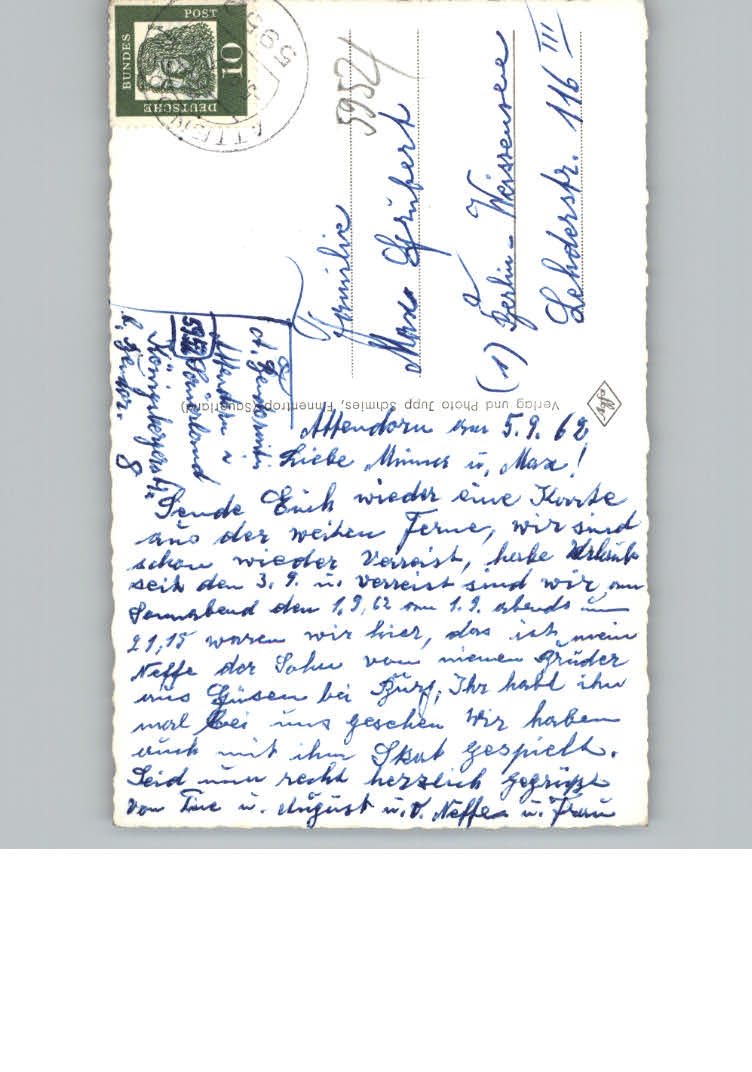 DEUTSCHE
BUNDES
POST
10
595
5952
Familie
Max Grübert
(1) Berlin-Weissensee
Lehderstr. 116 III
Attendorn i
5952 Sauerland
Königsbergerstr.
8
Verlag und Photo Jupp Schmies, Finnentrop (Sauerland)
Attendorn am 5.9.62
Liebe Minna u. Max!
Sende Euch wieder eine Karte
aus der weiten Ferne, wir sind
schon wieder verreist, habe Urlaub
seit den 3.9. u. verreist sind wir am
Sonnabend den 1.9.62 am 1.9. abends um
21,15 waren wir hier, das ist mein
Neffe der Sohn von meinen Brüder
aus Güsen bei Burg, Ihr habt ihn
mal bei uns gesehen Wir haben
auch mit ihm Skat gespielt.
Seid nun recht herzlich gegrüßt
von u. August u. d. Neffen u. Frau